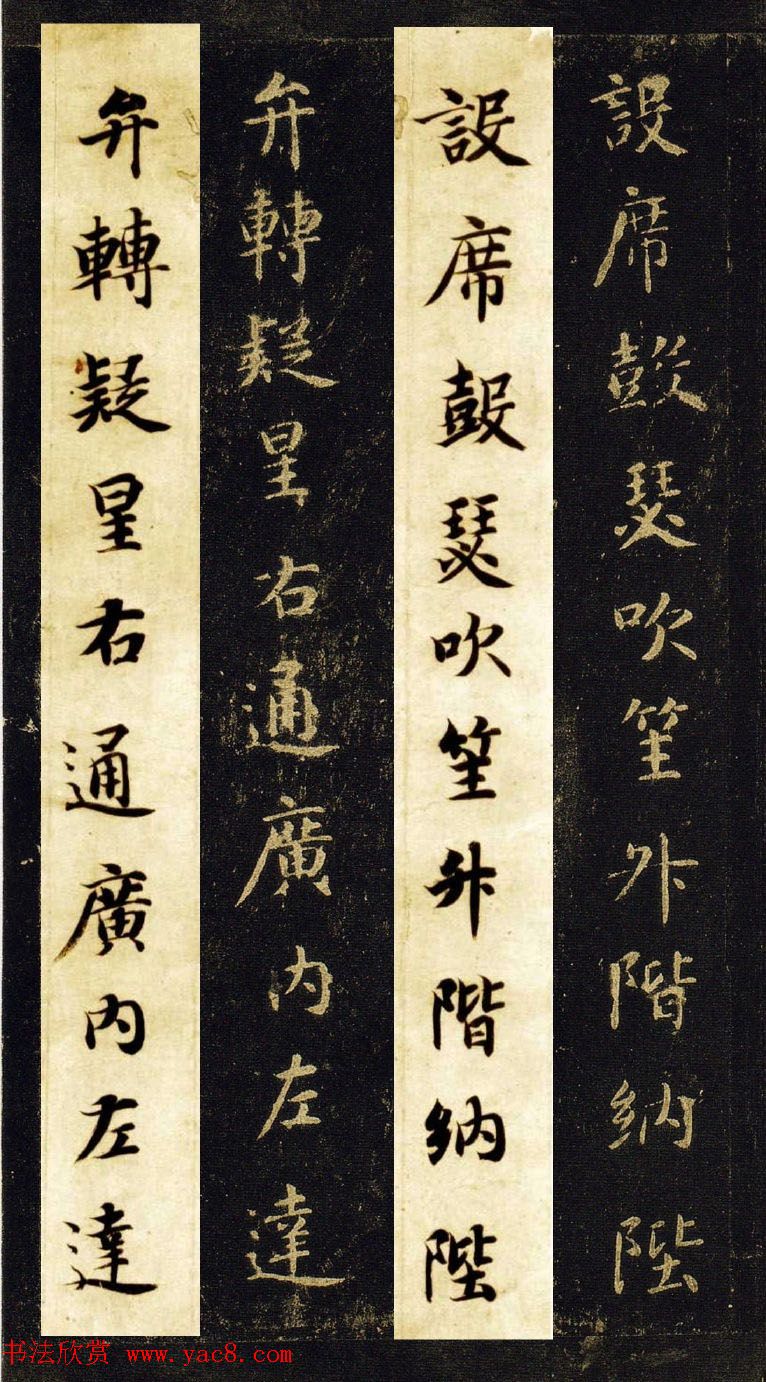 設席鼓瑟吹笙升階納陛
設席鼓瑟吹笙升階納陛
弁轉疑星右通廣內左達
弁轉疑星右通廣內左達
书法欣赏 www.yac8.com